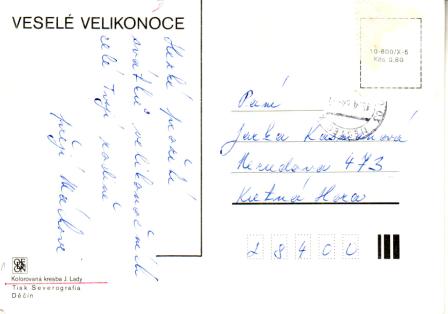 VESELÉ VELIKONOCE
Hezké prožití
svátků velikonočních
celé Tvojí rodině
přejí
10-600/X-5
Kčs 0,60
Paní
Jarka
Nerudova 473
Kutná Hora
28400
Kolorovaná kresba J. Lady
Tisk Severografia
Děčín